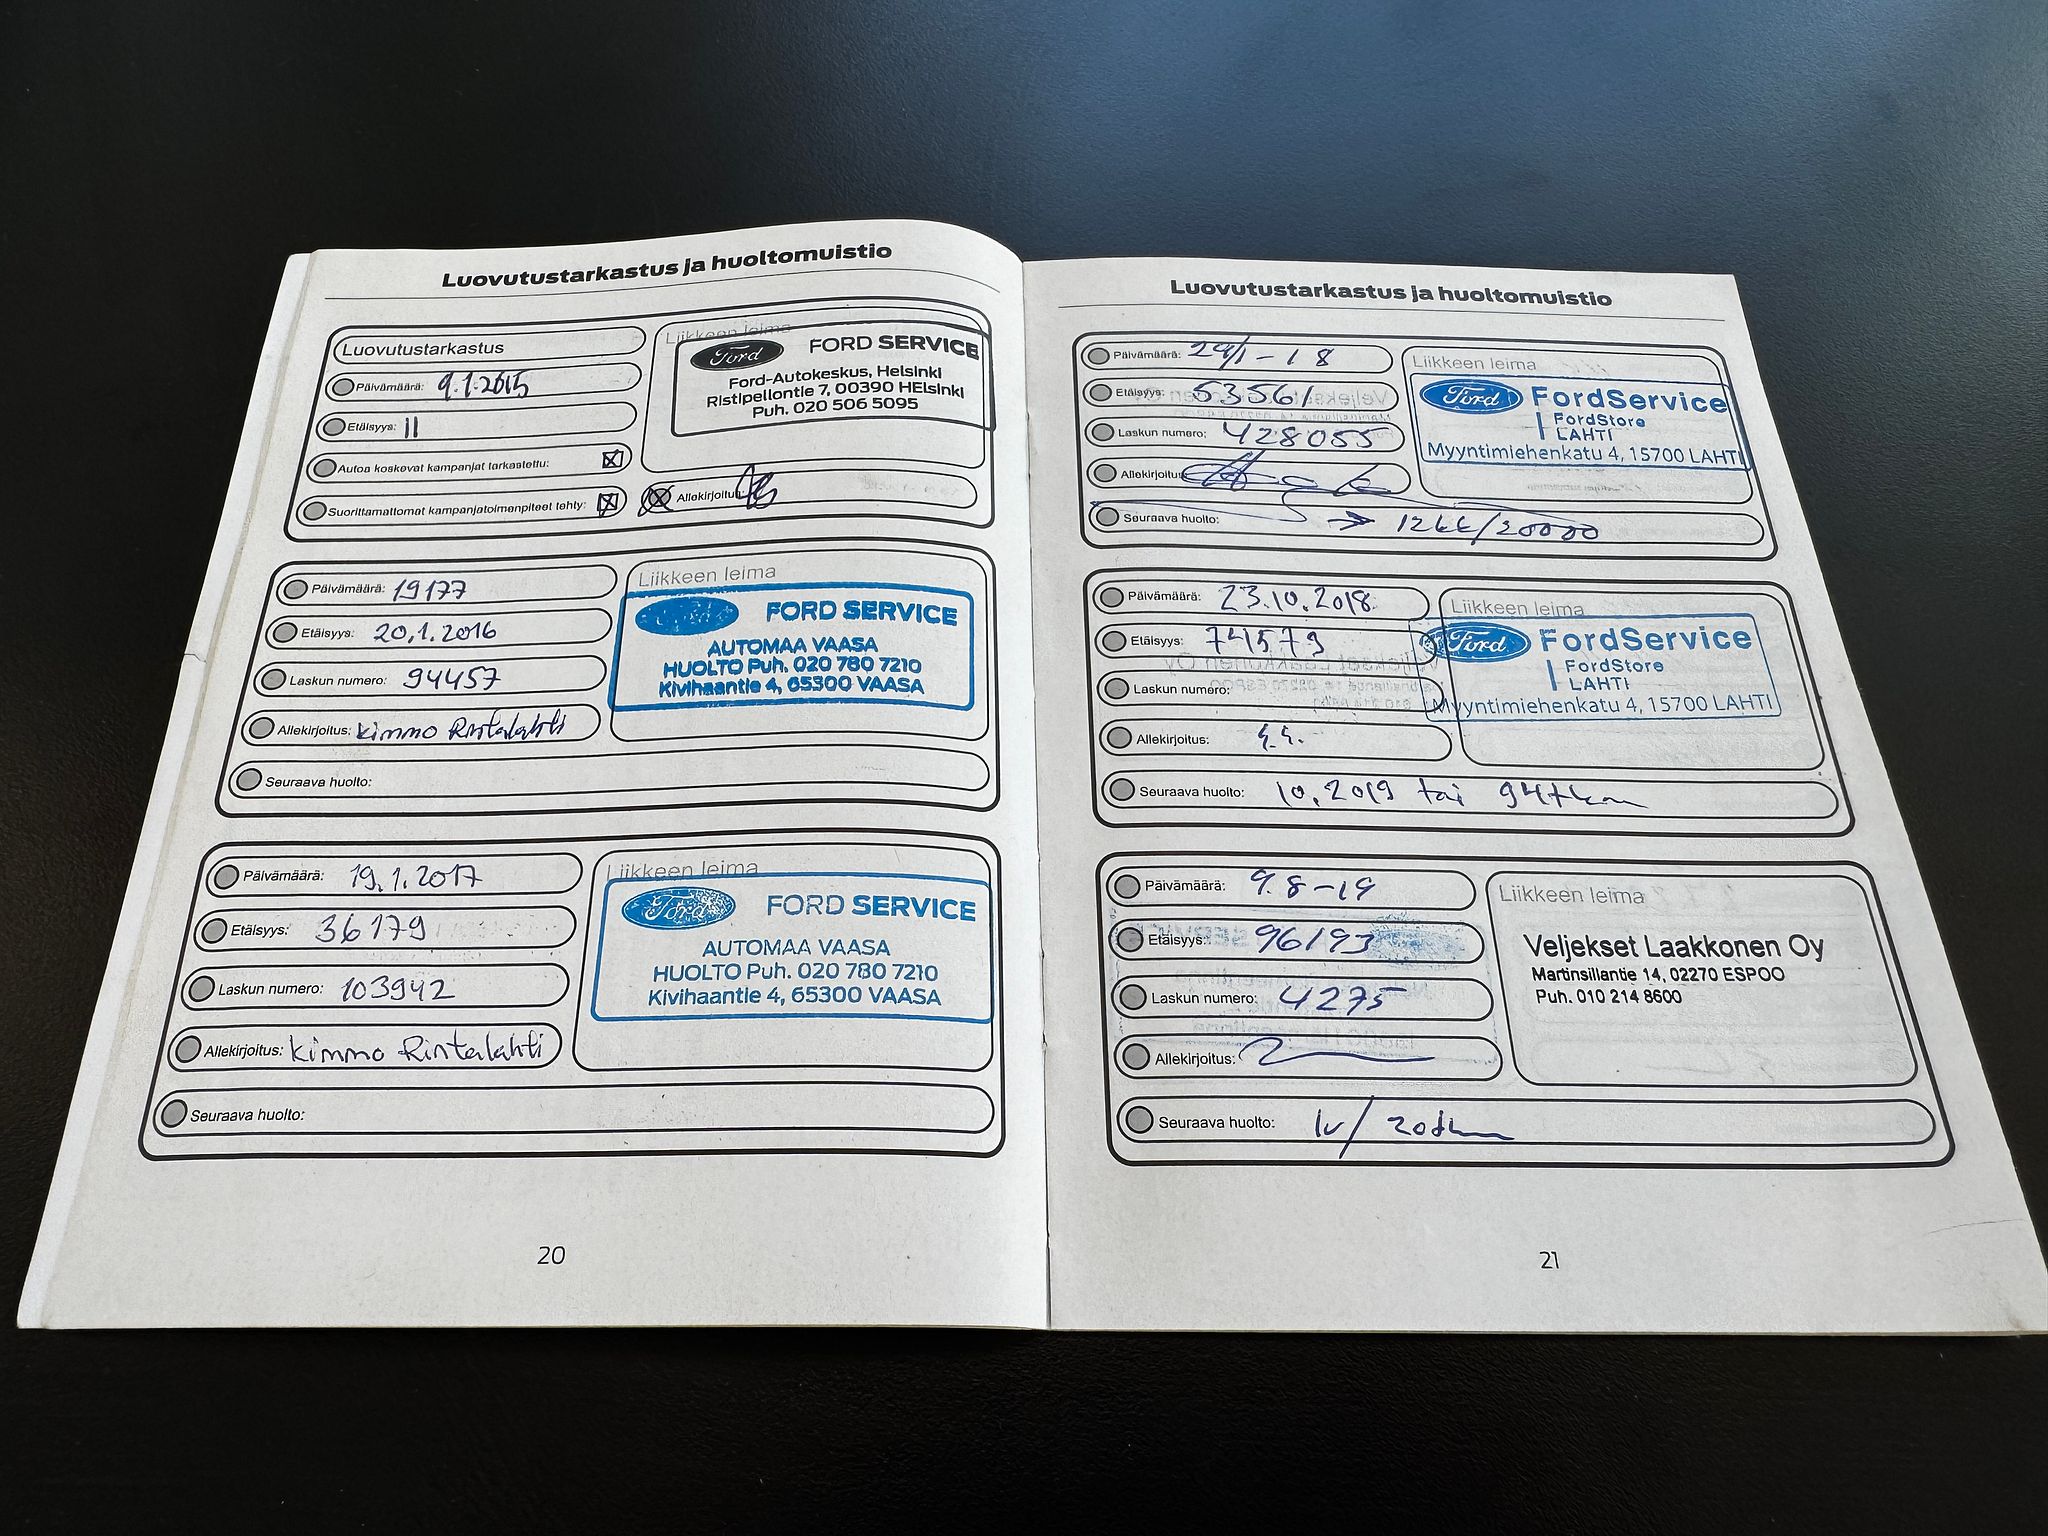 Luovutustarkastus ja huoltomuistio
Luovutustarkastus
Päivämäärä: 9.1.2015
Etäisyys: 11
Autoa koskevat kampanjat tarkastettu:
Suorittamattomat kampanjatoimenpiteet tehty:
Liikkeen leima
Ford FORD SERVICE
Ford-Autokeskus, Helsinki
Ristipellontie 7, 00390 HElsinki
Puh. 020 506 5095
Allekirjoitus:
Päivämäärä: 19177
Etäisyys: 20.1.2016
Laskun numero: 94457
Allekirjoitus: Kimmo Rintalahti
Seuraava huolto:
Liikkeen leima
FORD SERVICE
AUTOMAA VAASA
HUOLTO Puh. 020 780 7210
Kivihaantie 4, 65300 VAASA
Päivämäärä: 19.1.2017
Etäisyys: 36179
Laskun numero: 103942
Allekirjoitus: Kimmo Rintalahti
Seuraava huolto:
Liikkeen leima
Ford FORD SERVICE
AUTOMAA VAASA
HUOLTO Puh. 020 780 7210
Kivihaantie 4, 65300 VAASA
20
Luovutustarkastus ja huoltomuistio
Päivämäärä: 29/1-18
Etäisyys: 53561
Laskun numero: 428055
Allekirjoitus:
Seuraava huolto: → 12kk/20000
Liikkeen leima
Ford FordService
FordStore
LAHTI
Myyntimiehenkatu 4, 15700 LAHTI
Päivämäärä: 23.10.2018
Etäisyys: 74579
Laskun numero:
Allekirjoitus:
Seuraava huolto: 10.2019 tai 94tkm
Liikkeen leima
Ford FordService
FordStore
LAHTI
Myyntimiehenkatu 4, 15700 LAHTI
Päivämäärä: 9.8-19
Etäisyys: 96193
Laskun numero: 4275
Allekirjoitus:
Seuraava huolto: 1v/20tkm
Liikkeen leima
Veljekset Laakkonen Oy
Martinsillantie 14, 02270 ESPOO
Puh. 010 214 8600
21